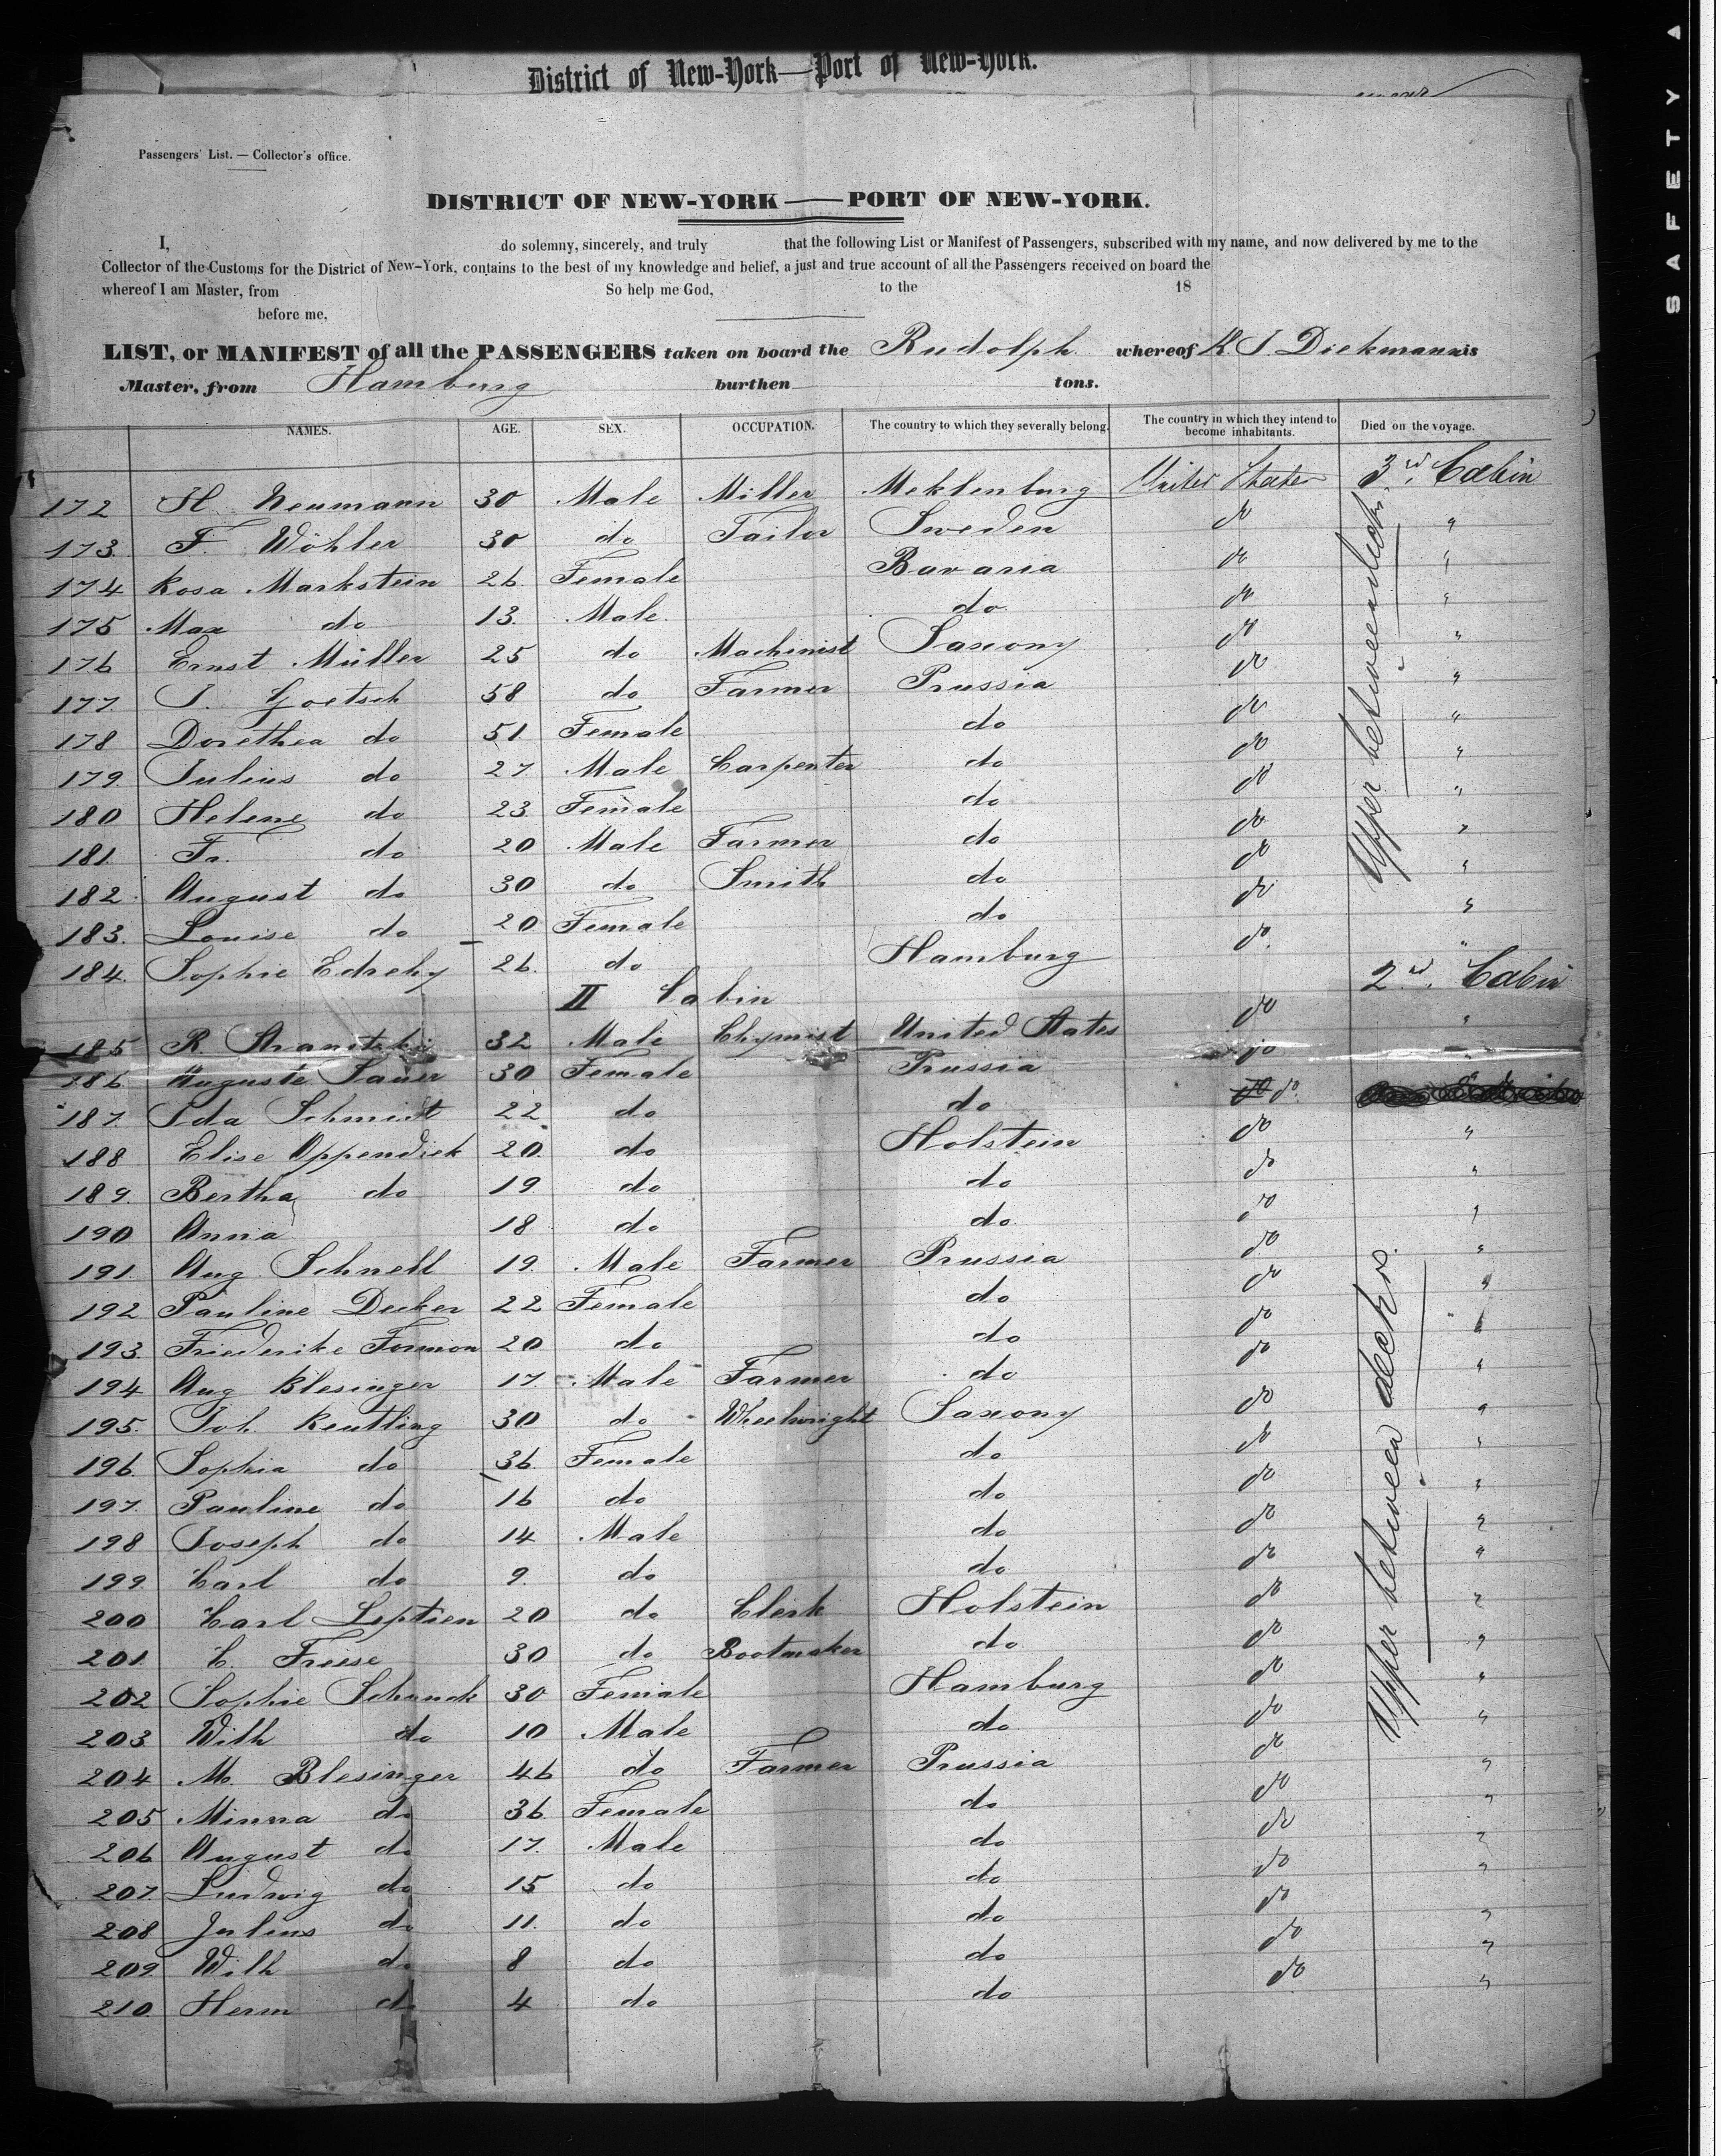 District of New-York—Port of New-York.
Passengers' List. — Collector's office.
DISTRICT OF NEW-YORK — PORT OF NEW-YORK.
I, do solemny, sincerely, and truly that the following List or Manifest of Passengers, subscribed with my name, and now delivered by me to the
Collector of the Customs for the District of New-York, contains to the best of my knowledge and belief, a just and true account of all the Passengers received on board the
whereof I am Master, from So help me God, to the 18
before me,
LIST, or MANIFEST of all the PASSENGERS taken on board the Rudolph whereof R. J. Diekmann is
Master, from Hamburg burthen tons.
NAMES. AGE. SEX. OCCUPATION. The country to which they severally belong. The country in which they intend to become inhabitants. Died on the voyage.
172 H. Neumann 30 Male Miller Meklenburg United States 3rd. Cabin
173. F. Wöhler 30 do Tailor Sweden do "
174 Rosa Markstein 26. Female Bavaria do "
175 Max do 13. Male. do. do "
176 Ernst Müller 25 do Machinist Saxony do "
177. J. Goetsch 58 do Farmer Prussia do "
178 Dorethea do 51. Female do do "
179. Julius do 27 Male Carpenter do do "
180 Helene do 23. Female do do "
181. Fr. do 20 Male Farmer do do "
182. August do 30 do Smith do do "
183. Louise do 20 Female do do "
184. Sophie Edrehy 26. do Hamburg do. "
Upper betweendecks.
II Cabin 2nd. Cabin
185 R. 32 Male Chymist United States do "
186 Auguste Sauer 30 Female Prussia do "
187. Ida Schmidt 22. do do do.
188 Elise Oppendiek 20. do Holstein do "
189. Bertha do 19. do do do "
190 Anna 18 do do. do "
191. Aug. Schnell 19. Male Farmer Prussia do "
192 Pauline Decker 22 Female do do "
193. Friederike Formon 20 do do do "
194 Aug Blesinger 17. Male Farmer do do "
195. Joh. Reutling 30 do Wheelwright Saxony do "
196. Sophia do 36. Female do do "
197. Pauline do 16 do do do "
198 Joseph do 14 Male do do "
199. Carl do 9. do do do "
200 Carl Leptien 20 do Clerk Holstein do "
201. C. Friese 30 do Bootmaker do do "
202 Sophie Schunck 30 Female Hamburg do "
203 Wilh do 10 Male do do "
204 M. Blesinger 46 do Farmer Prussia do "
205 Minna do 36. Female do do "
206 August do 17. Male do do "
207. Ludwig do 15 do do do "
208 Julius do 11. do do do "
209. Wilh do 8 do do do "
210. Herm do 4 do do do "
Upper between decks.
SAFETY